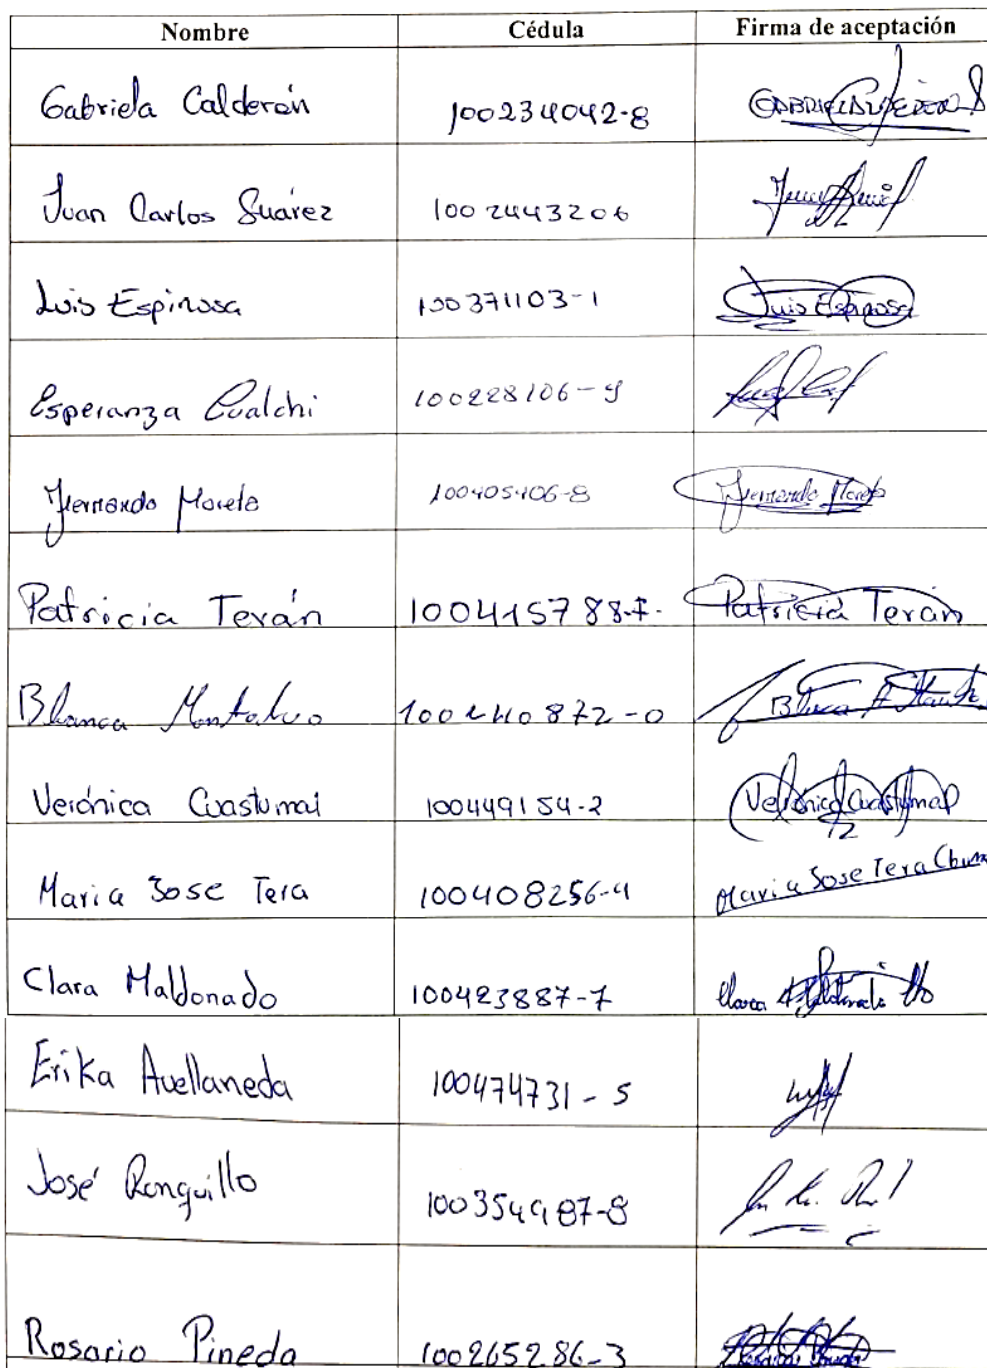 Nombre Cédula Firma de aceptación
Gabriela Calderón 100234042-8
Juan Carlos Suárez 1002443206
Luis Espinosa 100371103-1 Luis Espinosa
Esperanza Cualchi 100228106-9
Fernando Moreta 100405406-8 Fernando Moreta
Patricia Terán 100415788-7. Patricia Terán
Blanca Montalvo 100240872-0 Blanca
Verónica Cuastumal 100449154-2 Verónica Cuastumal
Maria Jose Tera 100408256-4 Maria Jose Tera
Clara Maldonado 100423887-7 Clara Maldonado
Erika Avellaneda 100474731-5
José Ronquillo 100354987-8
Rosario Pineda 100265286-3